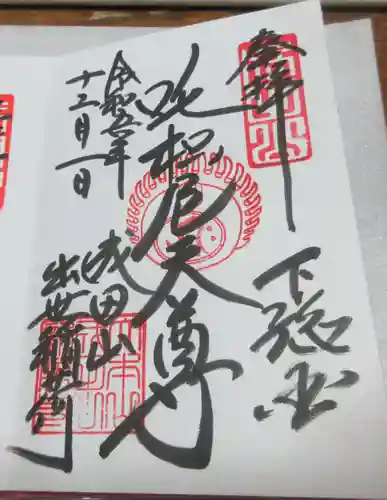 奉拝
下総国
吒枳尼天尊
成田山
出世稲荷
令和五年
十二月一日